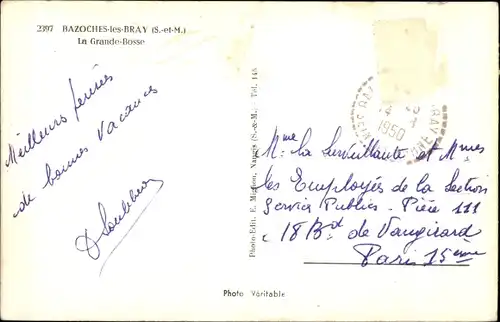 2397 BAZOCHES-les-BRAY (S.-et-M.)
La Grande-Bosse
Meilleurs pensées
de bonnes vacances
Photo-Edit. E. Mignon, Nangis (S.-&-M.) - Tél. 148
1950
BRAY
Mme la Surveillante et Mmes
les Employées de la Section
Service Publics - Pièce 111
18 Bt de Vaugirard
Paris 15ème
Photo Véritable